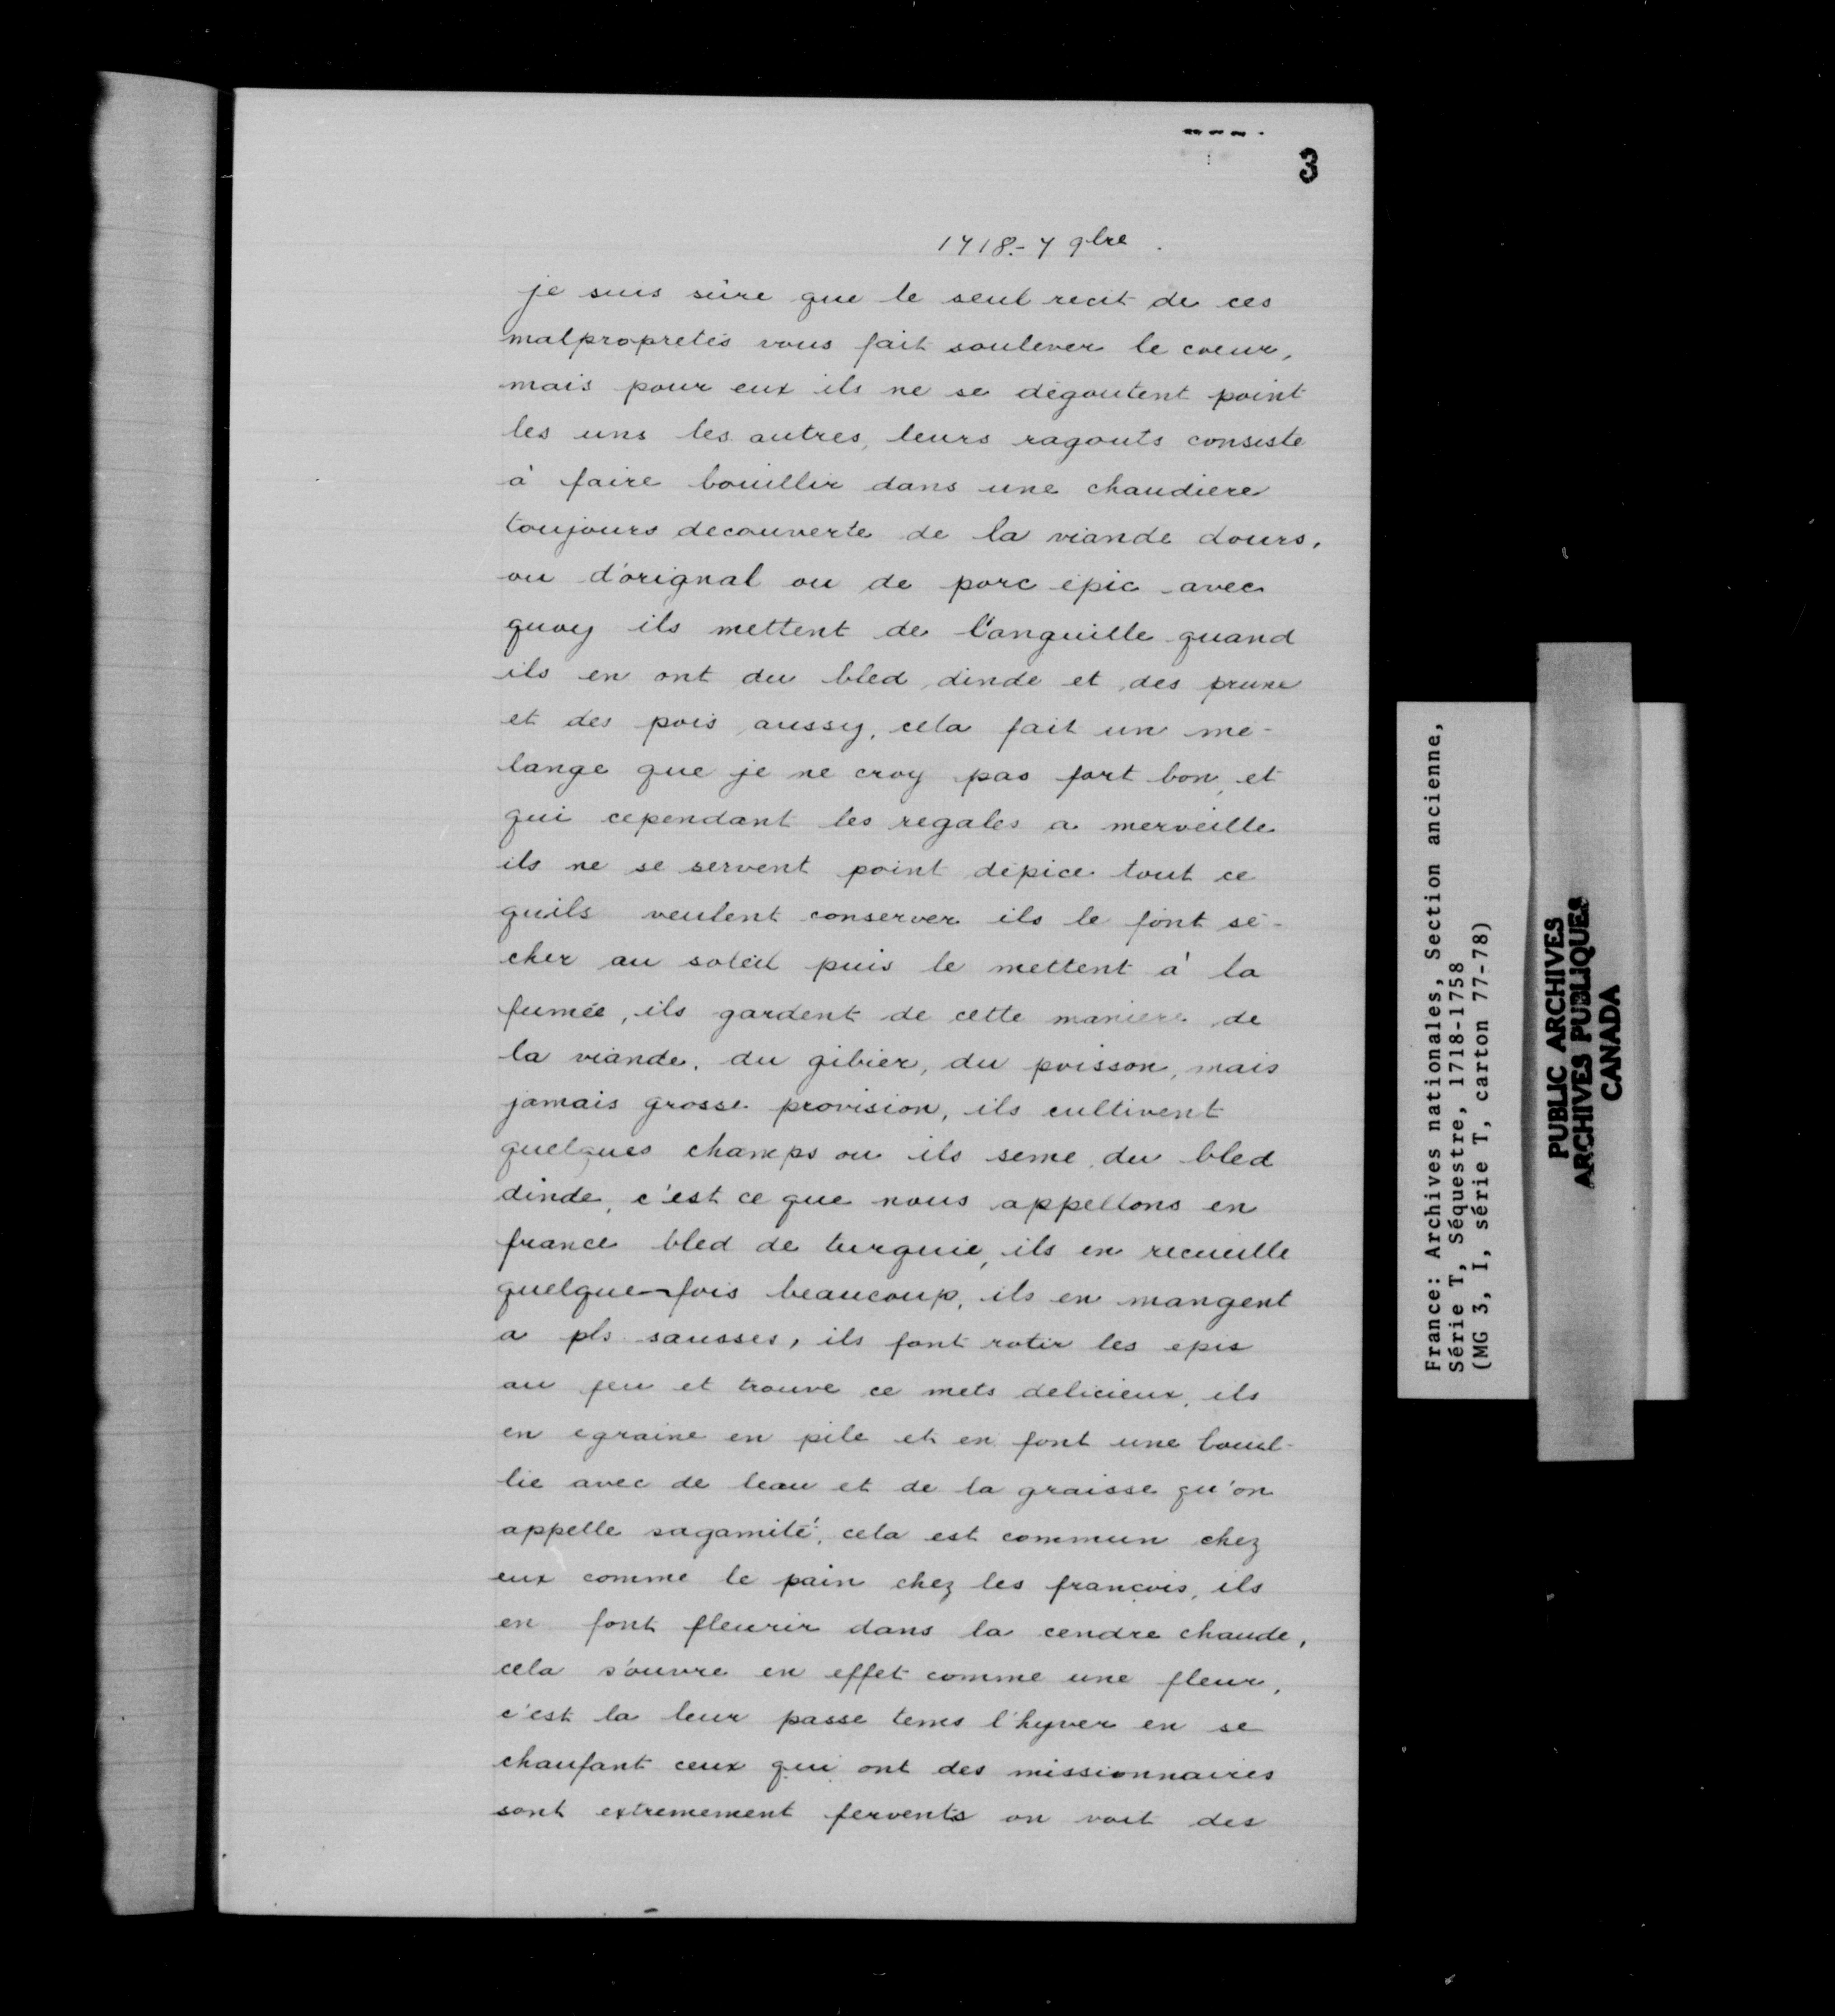 3
1718.- 7 9bre.
je suis sûre que le seul recit de ces
malpropretés vous fait soulever le coeur,
mais pour eux ils ne se dégoutent point
les uns les autres, leurs ragouts consiste
à faire bouillir dans une chaudiere
toujours decouverte de la viande dours,
ou d'orignal ou de porc épic avec
quoy ils mettent de l'anguille quand
ils en ont du bled dinde et des prune
et des pois aussy, cela fait un me-
lange que je ne croy pas fort bon, et
qui cependant les regales a merveille
ils ne se servent point dépice tout ce
quils veulent conserver ils le font sé-
cher au soleil puis le mettent à la
fumée, ils gardent de cette maniere de
la viande, du gibier, du poisson, mais
jamais grosse provision, ils cultivent
quelques champs ou ils seme du bled
dinde, c'est ce que nous appellons en
france bled de turquie, ils en recueille
quelque fois beaucoup, ils en mangent
a pls sausses, ils font rotir les epis
au feu et trouve ce mets delicieux, ils
en egraine en pile et en font une bouil-
lie avec de leau et de la graisse qu'on
appelle sagamité, cela est commun chez
eux comme le pain chez les françois, ils
en font fleurir dans la cendre chaude,
cela s'ouvre en effet comme une fleur,
c'est la leur passe tems l'hyver en se
chaufant ceux qui ont des missionnaires
sont extremement fervents on voit des
France: Archives nationales, Section ancienne,
Série T, Séquestre, 1718-1758
(MG 3, I, série T, carton 77-78)
PUBLIC ARCHIVES
ARCHIVES PUBLIQUES
CANADA